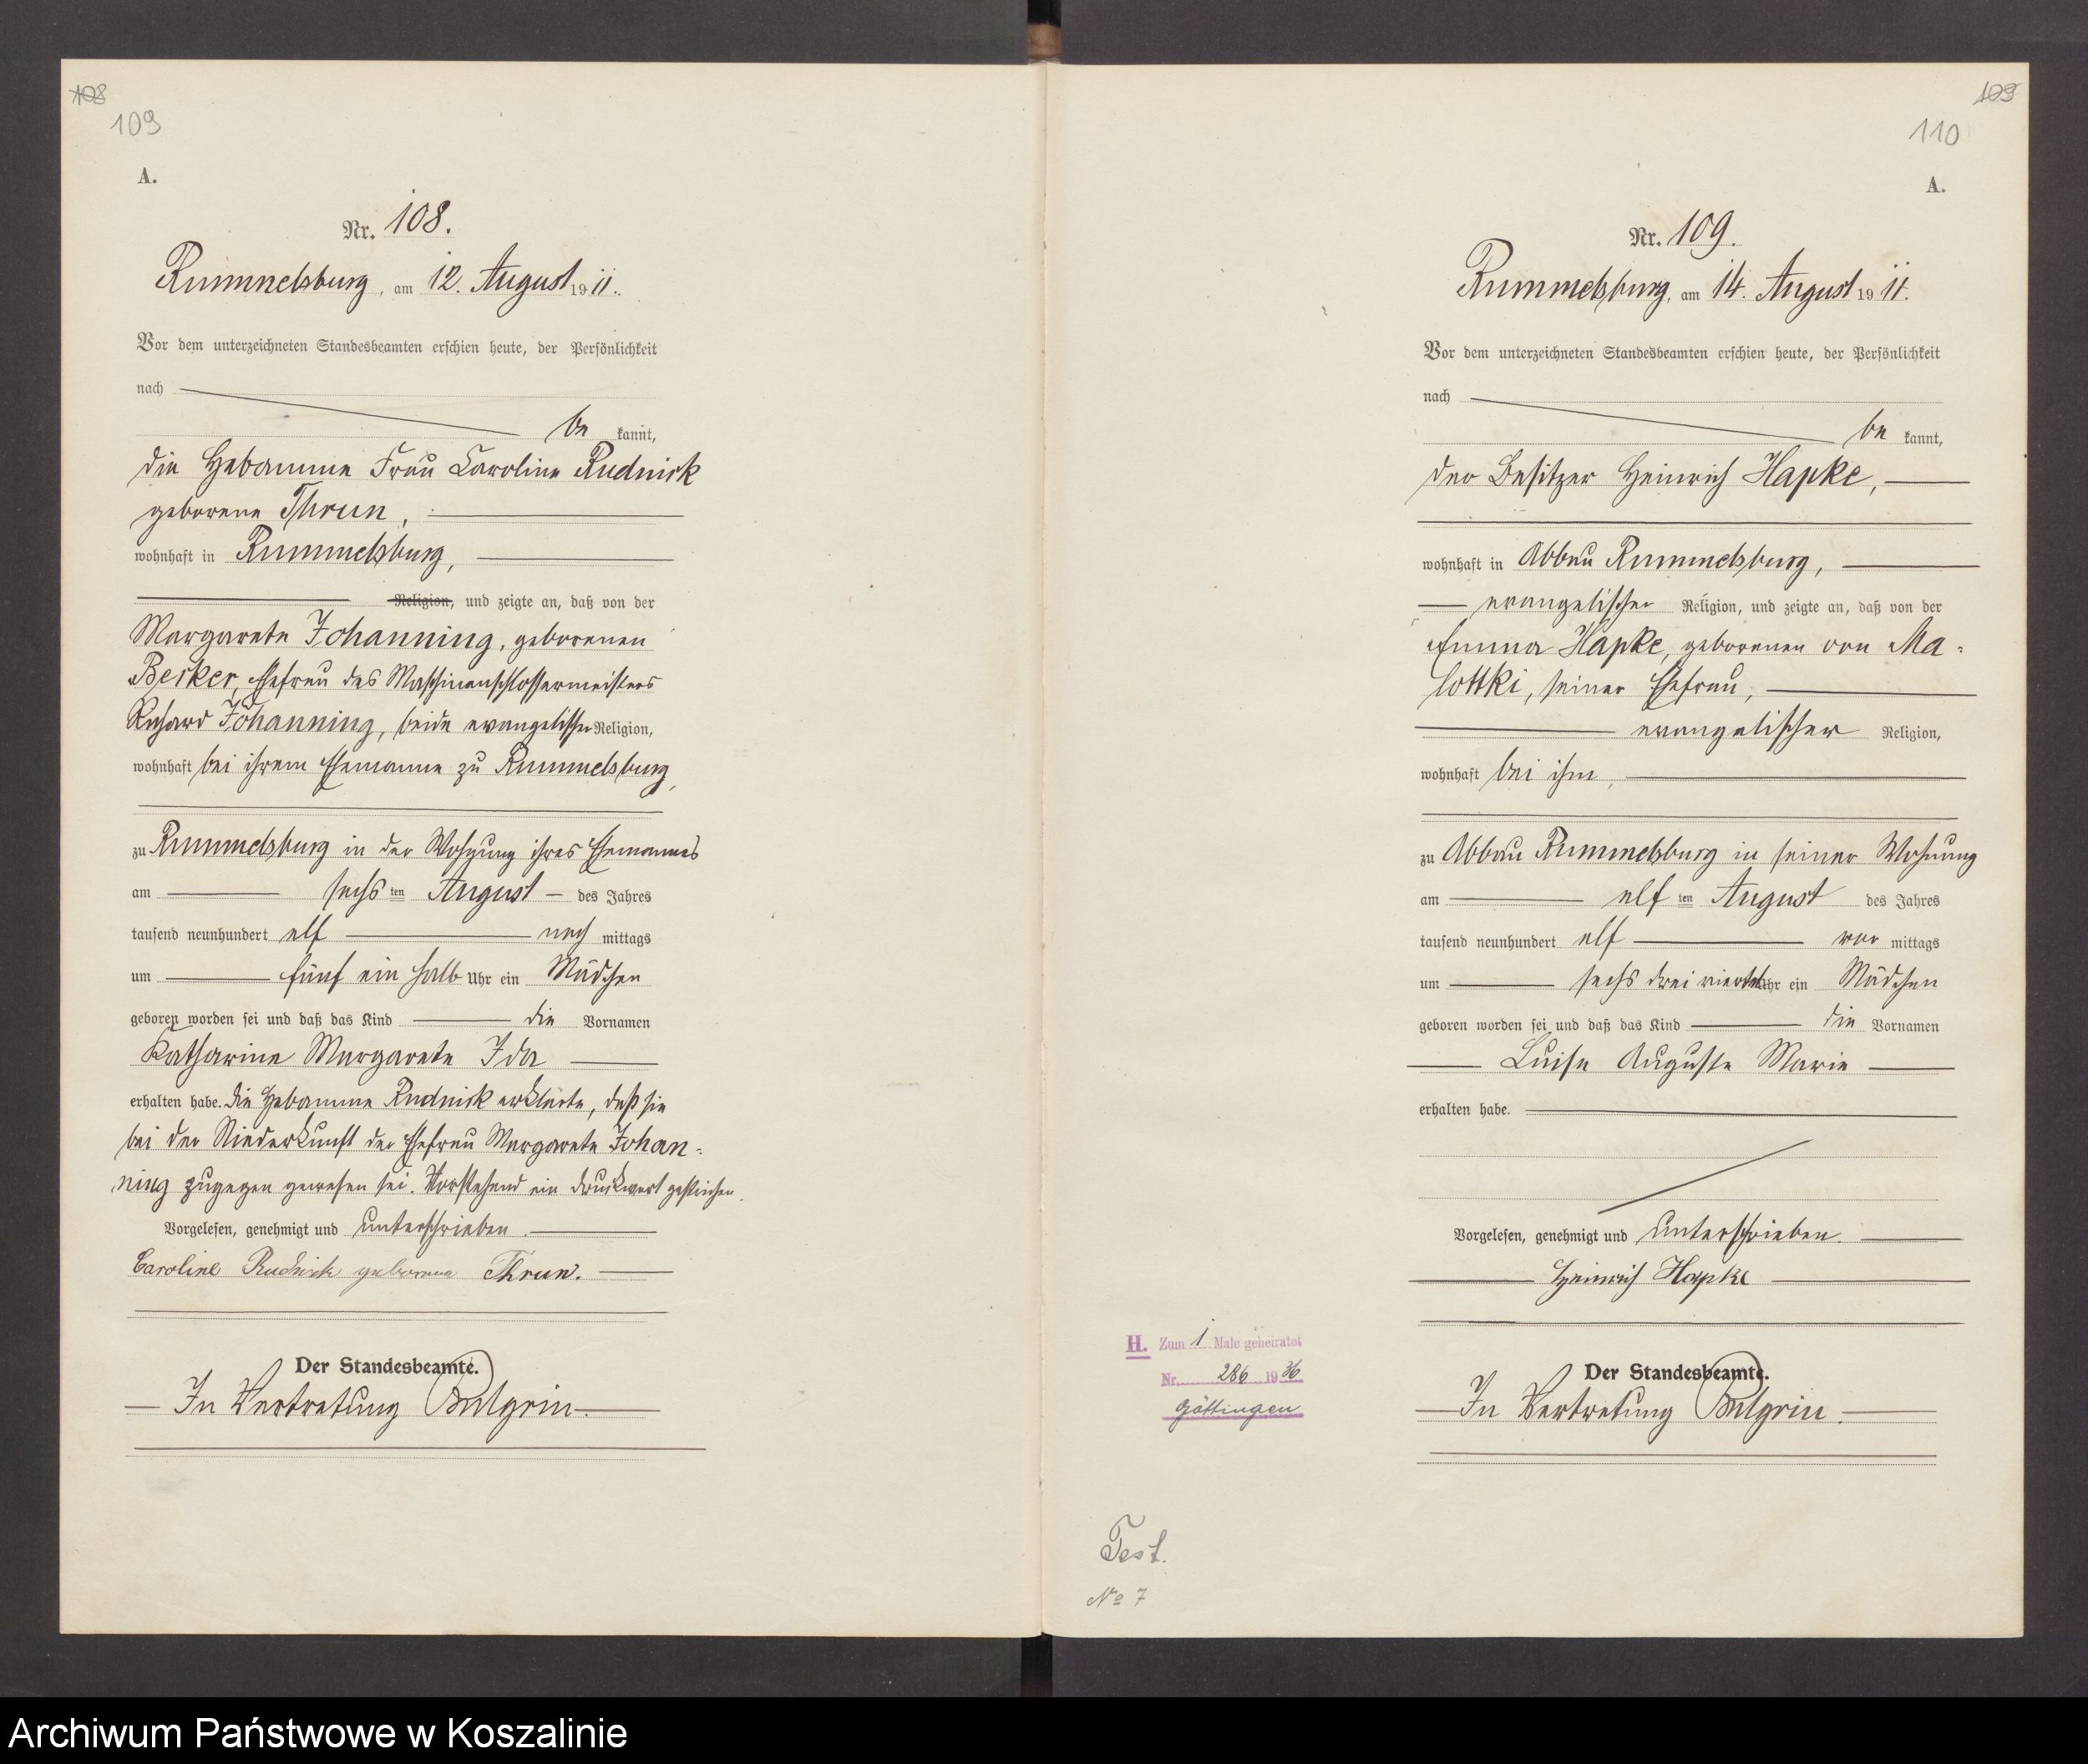 108
109
A.
Nr. 108.
Rummelsburg, am 12. August 1911.
Vor dem unterzeichneten Standesbeamten erschien heute, der Persönlichkeit
nach
be kannt,
die Hebamme Frau Caroline Rudnick
geborene Thrun,
wohnhaft in Rummelsburg,
Religion, und zeigte an, daß von der
Margarete Johanning, geborenen
Becker, Ehefrau des Maschinenschlossermeisters
Richard Johanning, beide evangelischer Religion,
wohnhaft bei ihrem Ehemanne zu Rummelsburg,
zu Rummelsburg in der Wohnung ihres Ehemannes
am sechsten August des Jahres
tausend neunhundert elf nach mittags
um fünf ein halb Uhr ein Mädchen
geboren worden sei und daß das Kind die Vornamen
Katharine Margarete Ida
erhalten habe. Die Hebamme Rudnick erklärte, daß sie
bei der Niederkunft der Ehefrau Margarete Johan-
ning zugegen gewesen sei. Vorstehend ein Druckwort gestrichen.
Vorgelesen, genehmigt und unterschrieben.
Caroline Rudnick geborene Thrun.
Der Standesbeamte.
In Vertretung
109
110
A.
Nr. 109.
Rummelsburg, am 14. August 1911.
Vor dem unterzeichneten Standesbeamten erschien heute, der Persönlichkeit
nach
be kannt,
der Besitzer Heinrich Hapke,
wohnhaft in Abbau Rummelsburg,
evangelischer Religion, und zeigte an, daß von der
Emma Hapke, geborenen von Ma-
lottki, seiner Ehefrau,
evangelischer Religion,
wohnhaft bei ihm,
zu Abbau Rummelsburg in seiner Wohnung
am elften August des Jahres
tausend neunhundert elf vor mittags
um sechs drei viertel Uhr ein Mädchen
geboren worden sei und daß das Kind die Vornamen
Luise Auguste Marie
erhalten habe.
Vorgelesen, genehmigt und unterschrieben.
Heinrich Hapke
Der Standesbeamte.
In Vertretung
H. Zum 1 Male geheiratet
Nr. 286 1936
Göttingen
Test.
No 7
Archiwum Państwowe w Koszalinie